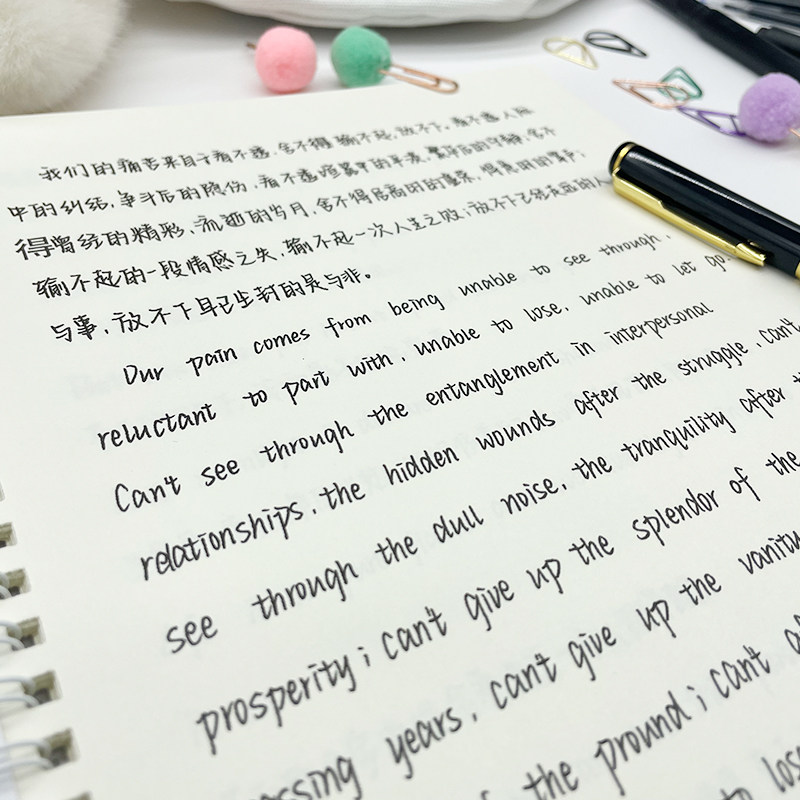 我们的痛苦来自于看不透,舍不得,输不起,放不下。看不透人际
中的纠结,争斗后的隐伤,看不透喧嚣中的平淡,繁华后的宁静;舍不
得曾经的精彩,流逝的岁月,舍不得居高时的虚荣,得意时的掌声;
输不起的一段情感之失,输不起一次人生之败;放不下已经走远的人
与事,放不下早已尘封的是与非。
Our pain comes from being unable to see through,
reluctant to part with, unable to lose, unable to let go.
Can't see through the entanglement in interpersonal
relationships, the hidden wounds after the struggle, can't
see through the dull noise, the tranquility after
prosperity; can't give up the splendor of the
years, can't give up the vanity
the pround; can't
to lose